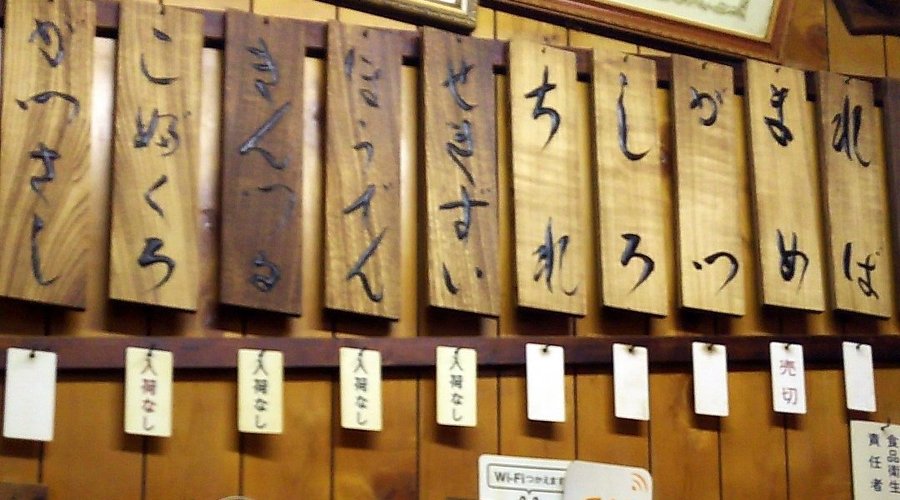 れば
まめ
がつ
しろ
ちれ
せきずい
ほうでん
きんつる
こぶくろ
がつさし
売切
入荷なし
入荷なし
入荷なし
入荷なし
食品衛生
責任者
Wi-Fiつかえます